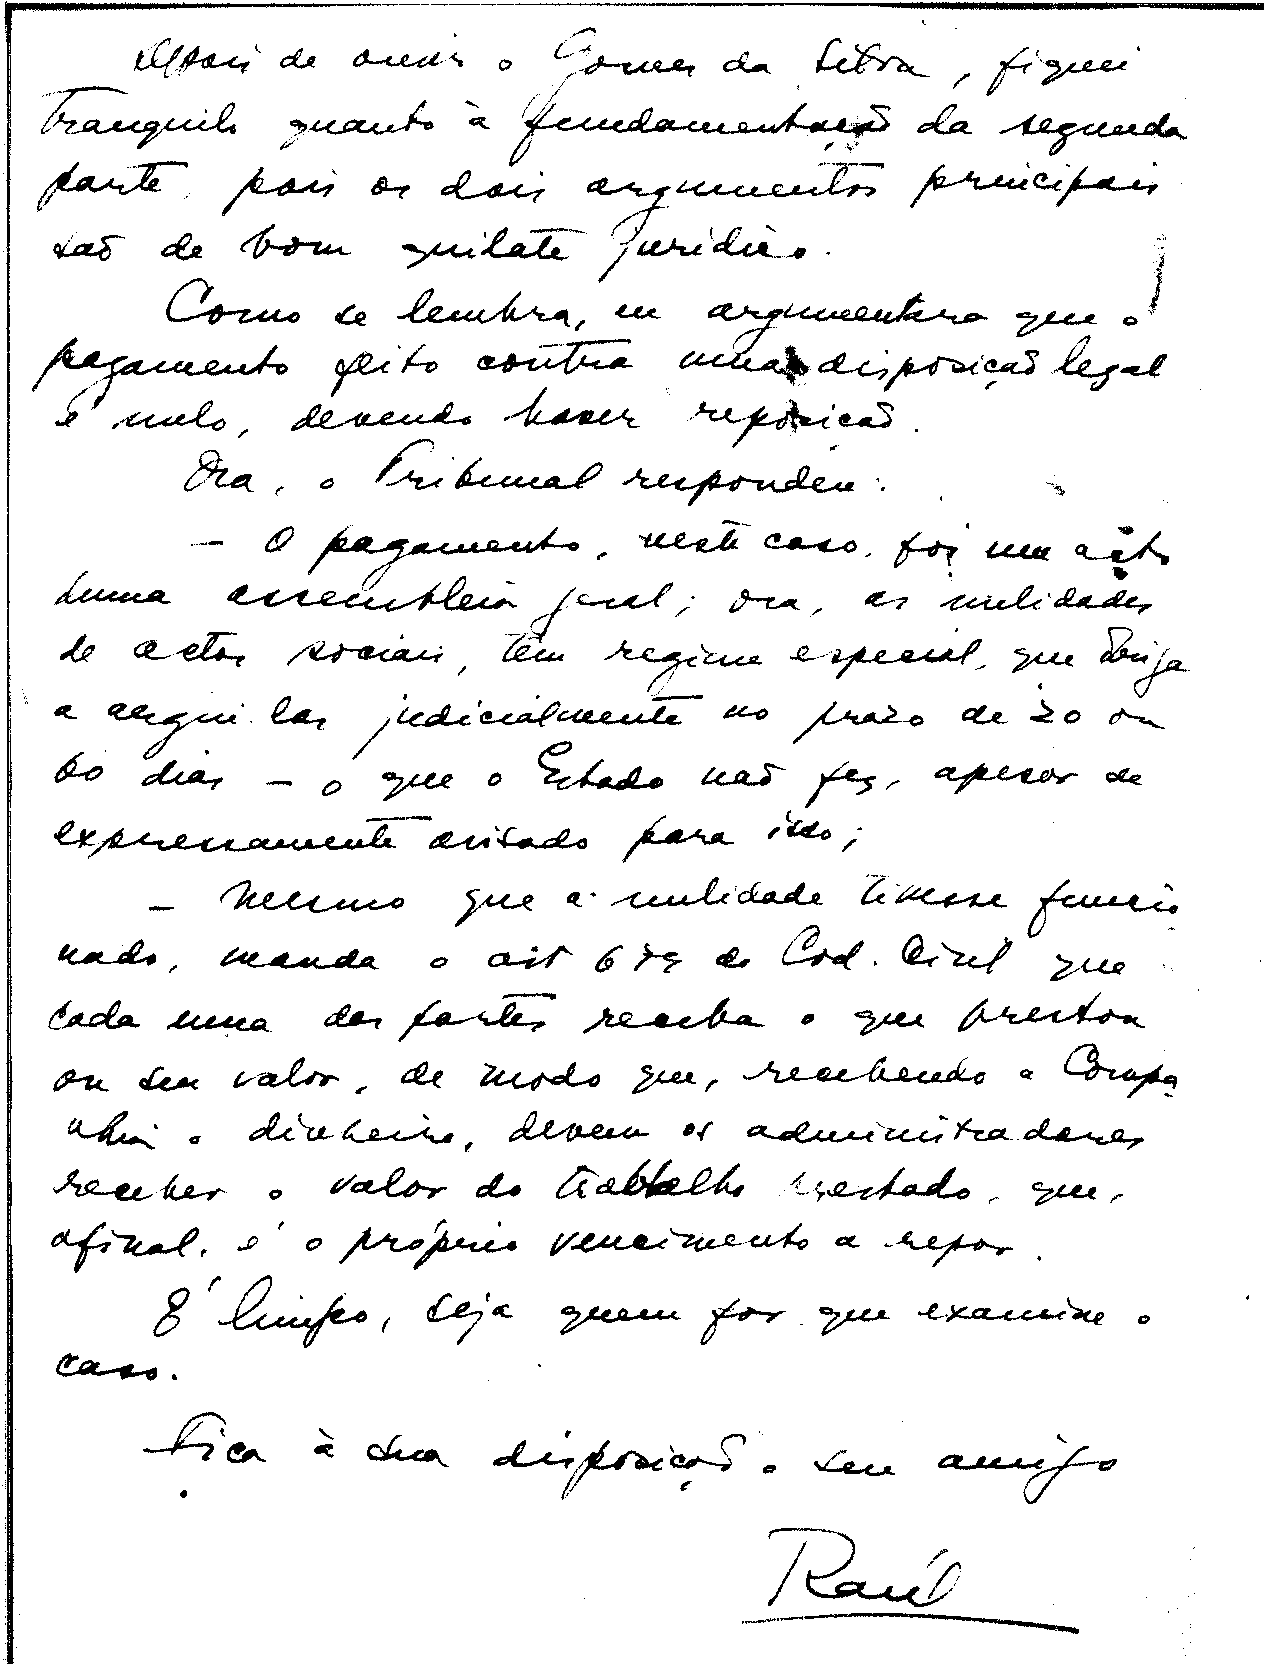 Depois de ouvir o Gomes da Silva, fiquei
tranquilo quanto à fundamentação da segunda
parte, pois os dois argumentos principais
são de bom quilate jurídico.
Como se lembra, eu argumentara que o
pagamento feito contra uma disposição legal
é nulo, devendo haver reposição.
Ora, o Tribunal respondeu:
— O pagamento, neste caso, foi um acto
duma assembleia geral; ora, as nulidades
de actos sociais, têm regime especial, que obriga
a argui-las judicialmente no prazo de 20 ou
60 dias — o que o Estado não fez, apesar de
expressamente avisado para isso;
— Mesmo que a nulidade tivesse funcio
nado, manda o art do Cod. Civil que
cada uma das partes receba o que prestou
ou seu valor, de modo que, recebendo a Compa
nhia o dinheiro, devem os administradores
receber o valor do trabalho prestado, que,
afinal, é o próprio vencimento a repor.
É limpo, seja quem for que examine o
caso.
Fica à sua disposição o seu amigo
Raúl